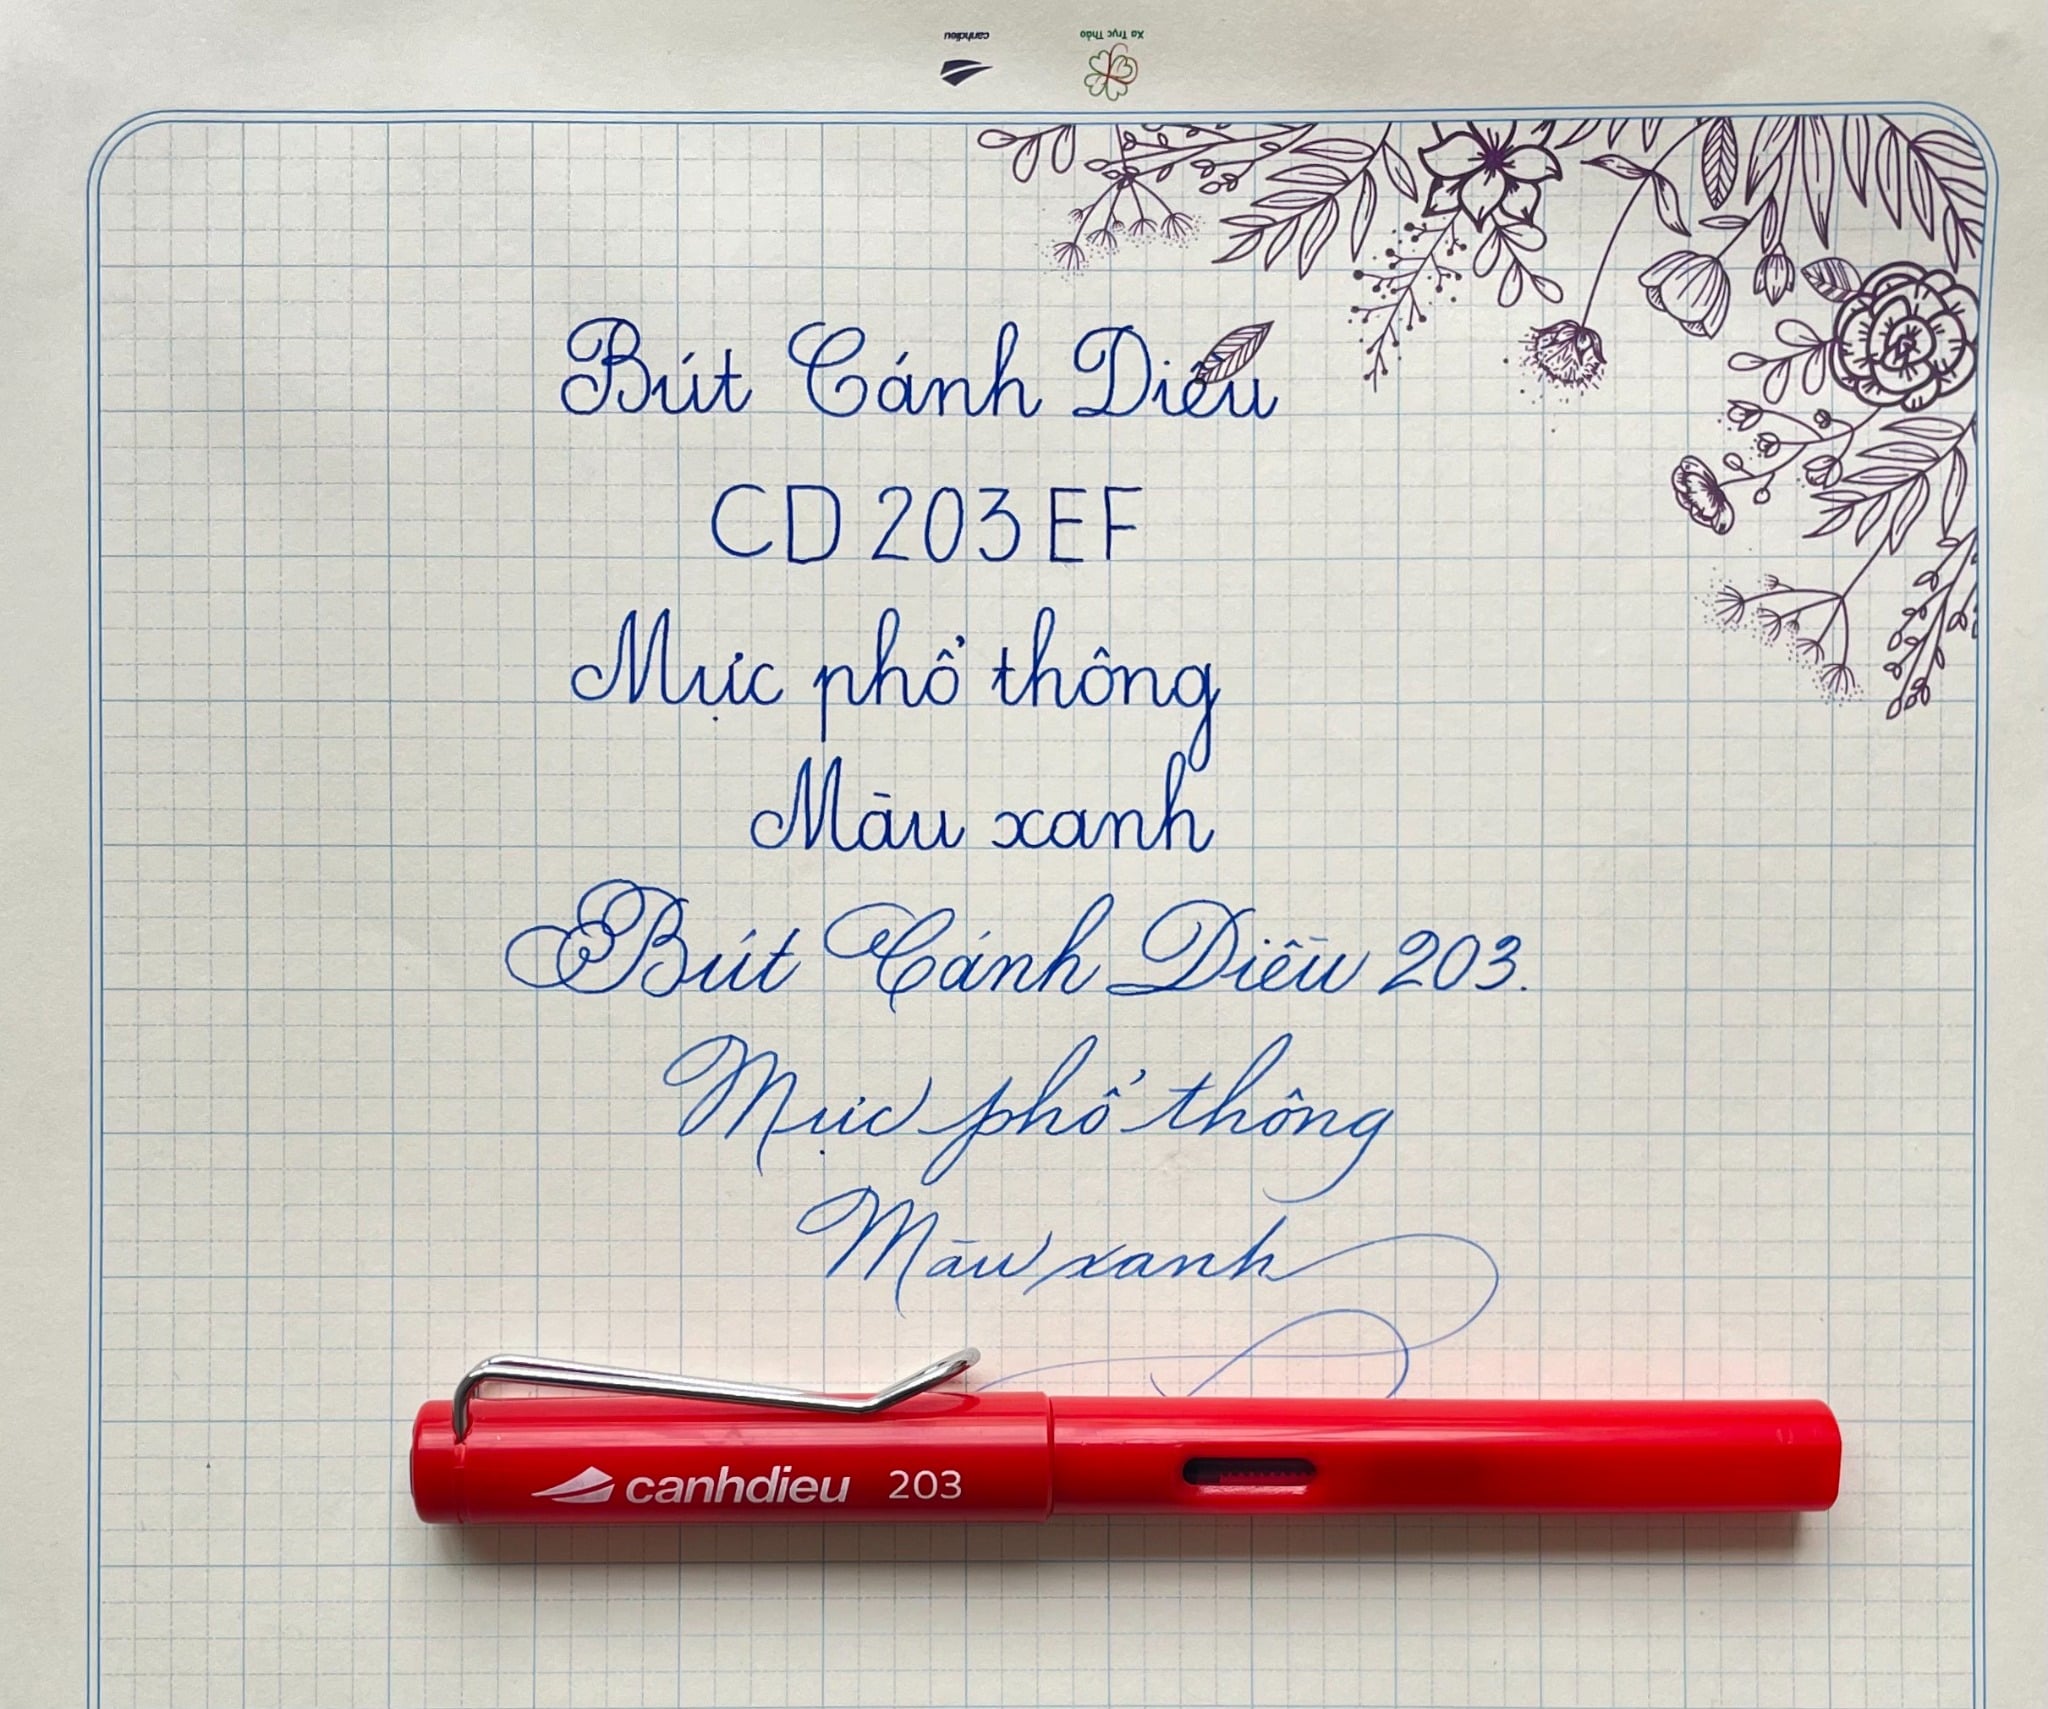 canhdieu
Xa Trục Thảo
Bút Cánh Diều
CD 203 EF
Mực phổ thông
Màu xanh
Bút Cánh Diều 203.
Mực phổ thông
Màu xanh
canhdieu 203